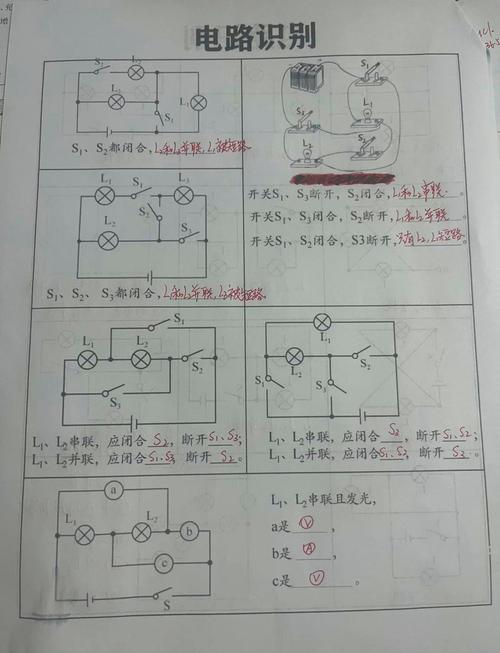 电路识别
S₁ L₂
L₁
S₁
S₁、S₂都闭合,L₂和L₃并联,L₁被短路
S₁
S₂ L₁
S₃
L₂
开关S₁、S₃断开,S₂闭合,L₁和L₂串联。
开关S₁、S₃闭合,S₂断开,L₁和L₂并联。
开关S₁、S₂闭合,S3断开,只有L₂,L₁短路。
L₁ S₁ L₃
S₂
L₂
S₃
S₁、S₂、S₃都闭合,L₁和L₂并联,L₃被短路
S₁
L₁ L₂
S₂
S₃
L₁、L₂串联,应闭合S₂,断开S₁、S₃;
L₁、L₂并联,应闭合S₁、S₃,断开S₂。
L₁
L₂ S₂
S₁ S₃
L₁、L₂串联,应闭合S₃,断开S₁、S₂;
L₁、L₂并联,应闭合S₁、S₂,断开S₃。
a
L₁ L₂
b
c
S
L₁、L₂串联且发光,
a是 V ,
b是 A ,
c是 V 。